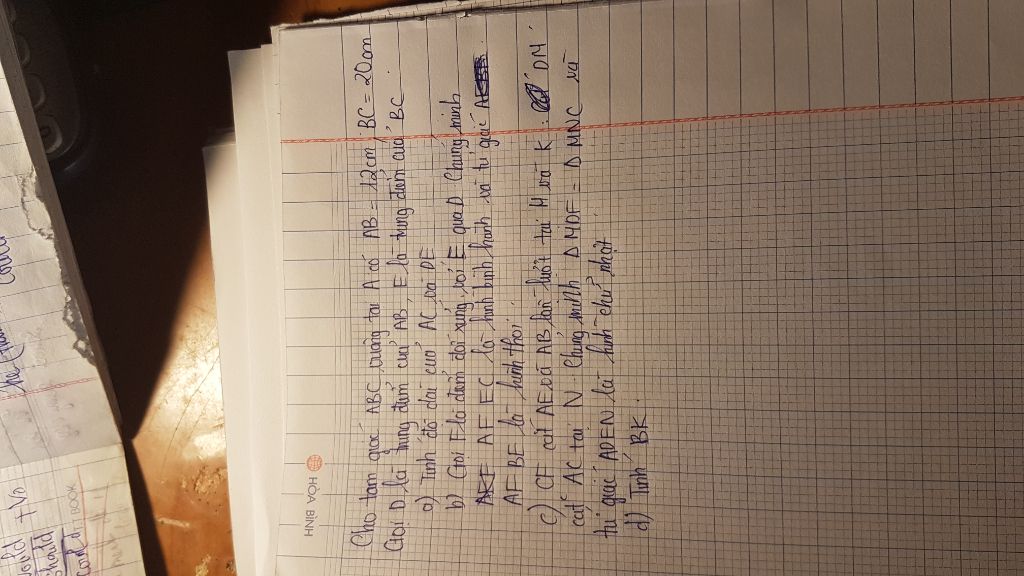 HOA BINH
Cho tam giác ABC vuông tại A có AB = 12cm BC = 20cm
Gọi D là trung điểm của AB, E là trung điểm của BC.
a) Tính độ dài của AC và DE
b) Gọi F là điểm đối xứng với E qua D Chứng minh
AFEC là hình bình hành và tứ giác
AFBE là hình thoi.
c) CF cắt AE và AB lần lượt tại M và K. DM
cắt AC tại N Chứng minh Δ MDF = Δ MNC và
tứ giác ADEN là hình chữ nhật
d) Tính BK.
would
should
could
BOOK